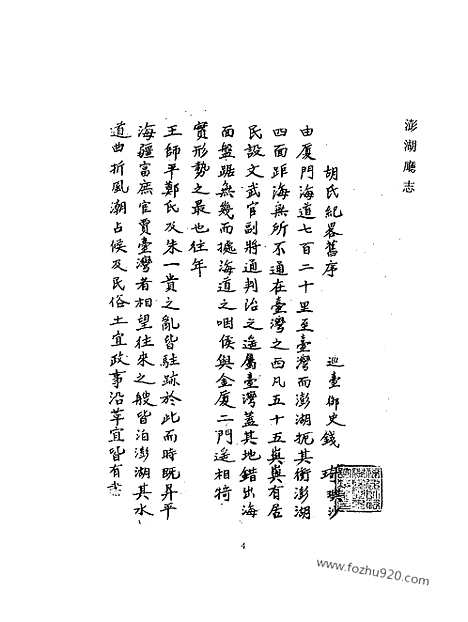 澎湖廳志
胡氏紀畧舊序
巡臺御史錢琦璵沙
由厦門海道七百二十里至臺灣而澎湖扼其衝澎湖
四面距海無所不通在臺灣之西凡五十五嶼嶼有居
民設文武官副將通判治之遥屬臺灣蓋其地錯出海
面盤踞無幾而擬海道之咽候與金厦二門遥相犄
實形勢之最也往年
王師平鄭氏及朱一貴之亂皆駐跡於此而時既昇平
海疆富庶官賈臺灣者相望往來之艘皆泊澎湖其水
道曲折風潮占候及民俗土宜政事沿革宜皆有
4
www.fozhu920.com